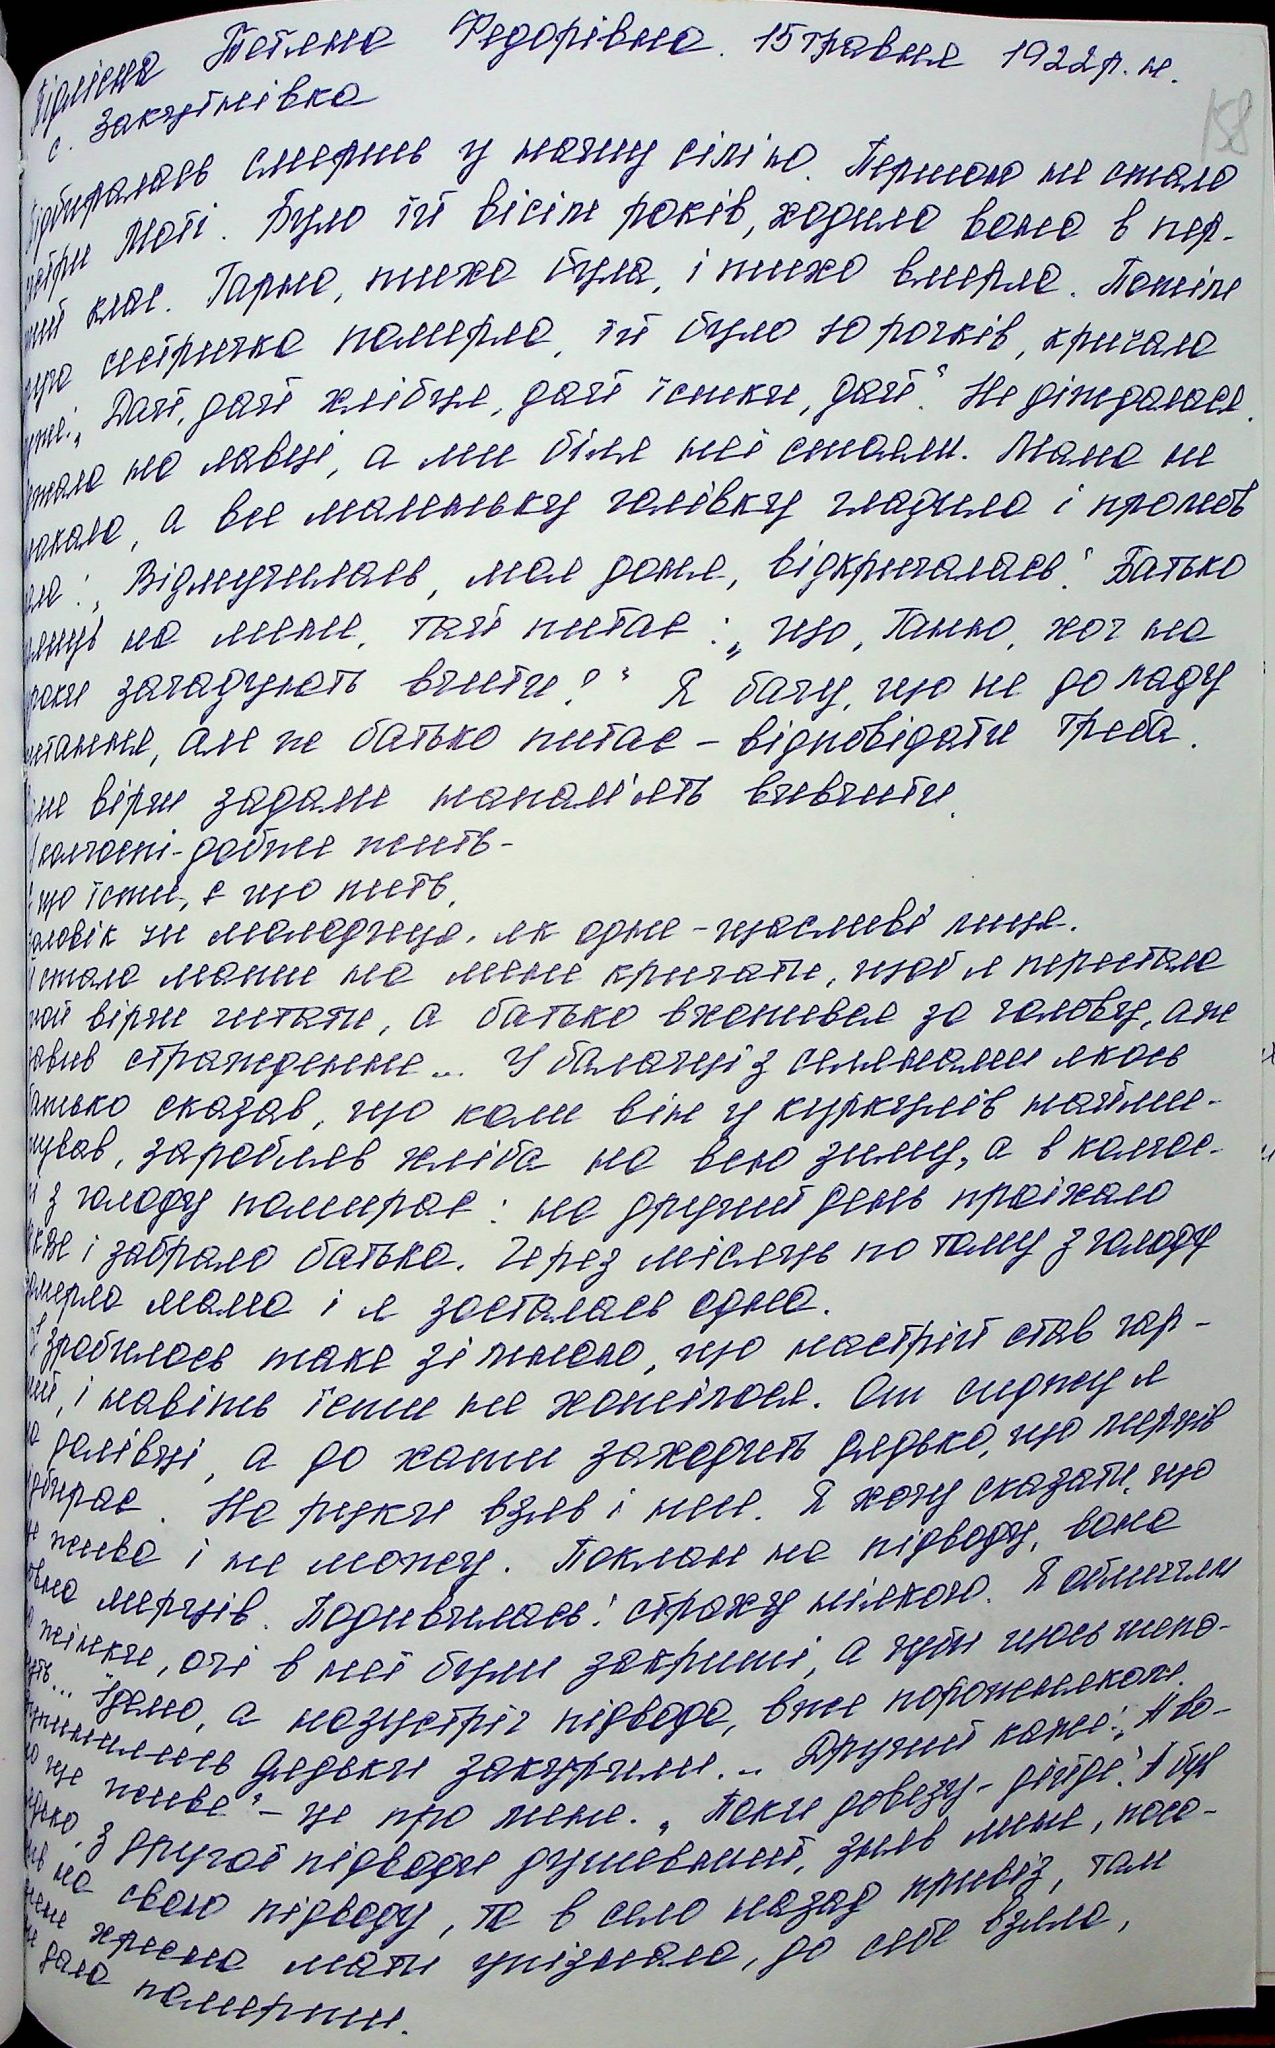 Тетяна Федорівна. 15 травня 1922 р. н.
с. Закутнівка
158
смерть у нашу сім'ю. Першою не стало
Моті. Було їй вісім років, ходила вона в пер-
клас. Гарна, тиха була, і тихо вмерла. Потім
сестричка померла, їй було 10 рочків, кричала
„Дай, дай хлібця, дай їстки, дай". Не діждалася.
на лавці, а ми біля неї стояли. Мама не
плакала, а все маленьку голівку гладила і промов
ляла: „Відмучилась, моя доня, відкричалась". Батько
на мене, тай питає: „що, Ганно, хоч на
уроки загадують вчити?" Я бачу, що не до ладу
питання, але ж батько питає – відповідати треба.
вірш задали напам'ять вивчити.
У колгоспі – добре жить –
Є що їсти, є що пить,
Чоловік чи молодиця, як одне – щасливі лиця.
стала мати на мене кричати, щоб я перестала
той вірш читати, а батько вхопився за голову, аж
страждення... У балачці з селянами якось
батько сказав, що коли він у куркулів найми-
тував, заробляв хліба на всю зиму, а в колгос-
пі з голоду помирає: на другий день приїхало
і забрало батька. Через місяць по тому з голоду
померла мама і я зосталась одна.
зробилось таке зі мною, що настрій став гар-
ний, і навіть їсти не хотілося. От сиджу я
на долівці, а до хати заходить дядько, що мерців
підбирає. На руки взяв і несе. Я хочу сказати, що
жива і не можу. Поклали на підводу, вона
повна мерців. Подивилась: страху ніякого. Я
жінки, очі в неї були закриті, а губи щось шепо-
чуть... Їдемо, а назустріч підвода, вже порожняком.
Зупинились дядьки закурили... Другий каже: „А во-
на ще жива" – це про мене. „Поки довезу – дійде". А був
дядько з другої підводи душевний, зняв мене, поса-
див на свою підводу, та в село назад привіз, там
мене хресна мати упізнала, до себе взяла,
не дала померти.